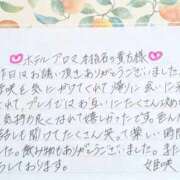 ホテルアロマ本指名の貴方様
昨日はお誘い頂きありがとうございました。
姫咲を気にかけてくれて帰りに会いに来
くれて、プレイではお互いにたくさん攻め
気持ち良くなれて嬉しかったです。色んな
話も聞けてたくさん笑って楽しい時間
した。飲み物もありがとうございました。また
しております。
姫咲